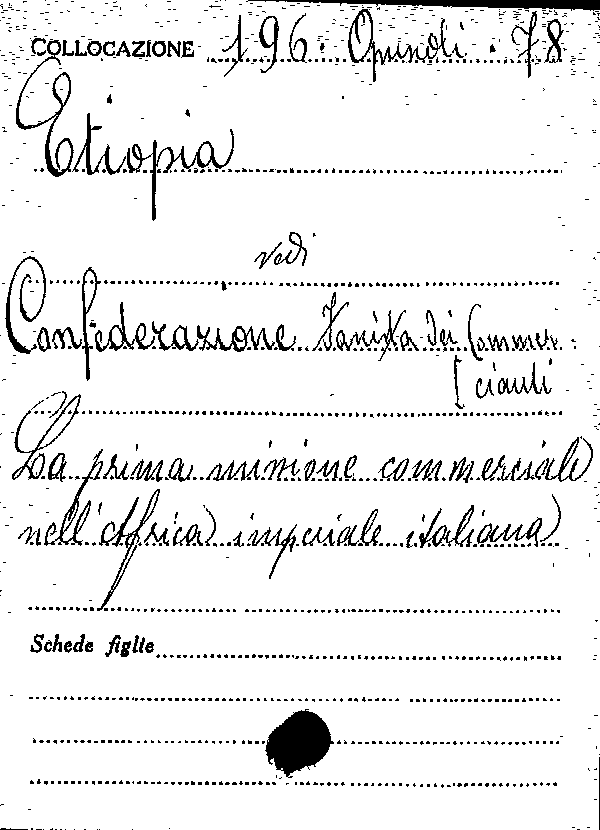 COLLOCAZIONE 196. Opuscoli. 78
Etiopia
vedi
Confederazione Fascista dei Commer-
[cianti
La prima missione commerciale
nell'Africa imperiale italiana
Schede figlie